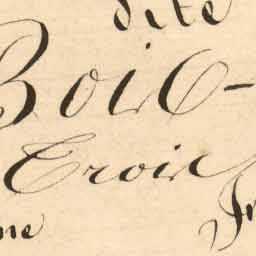 dite
Boil-
Croix
ne Fr